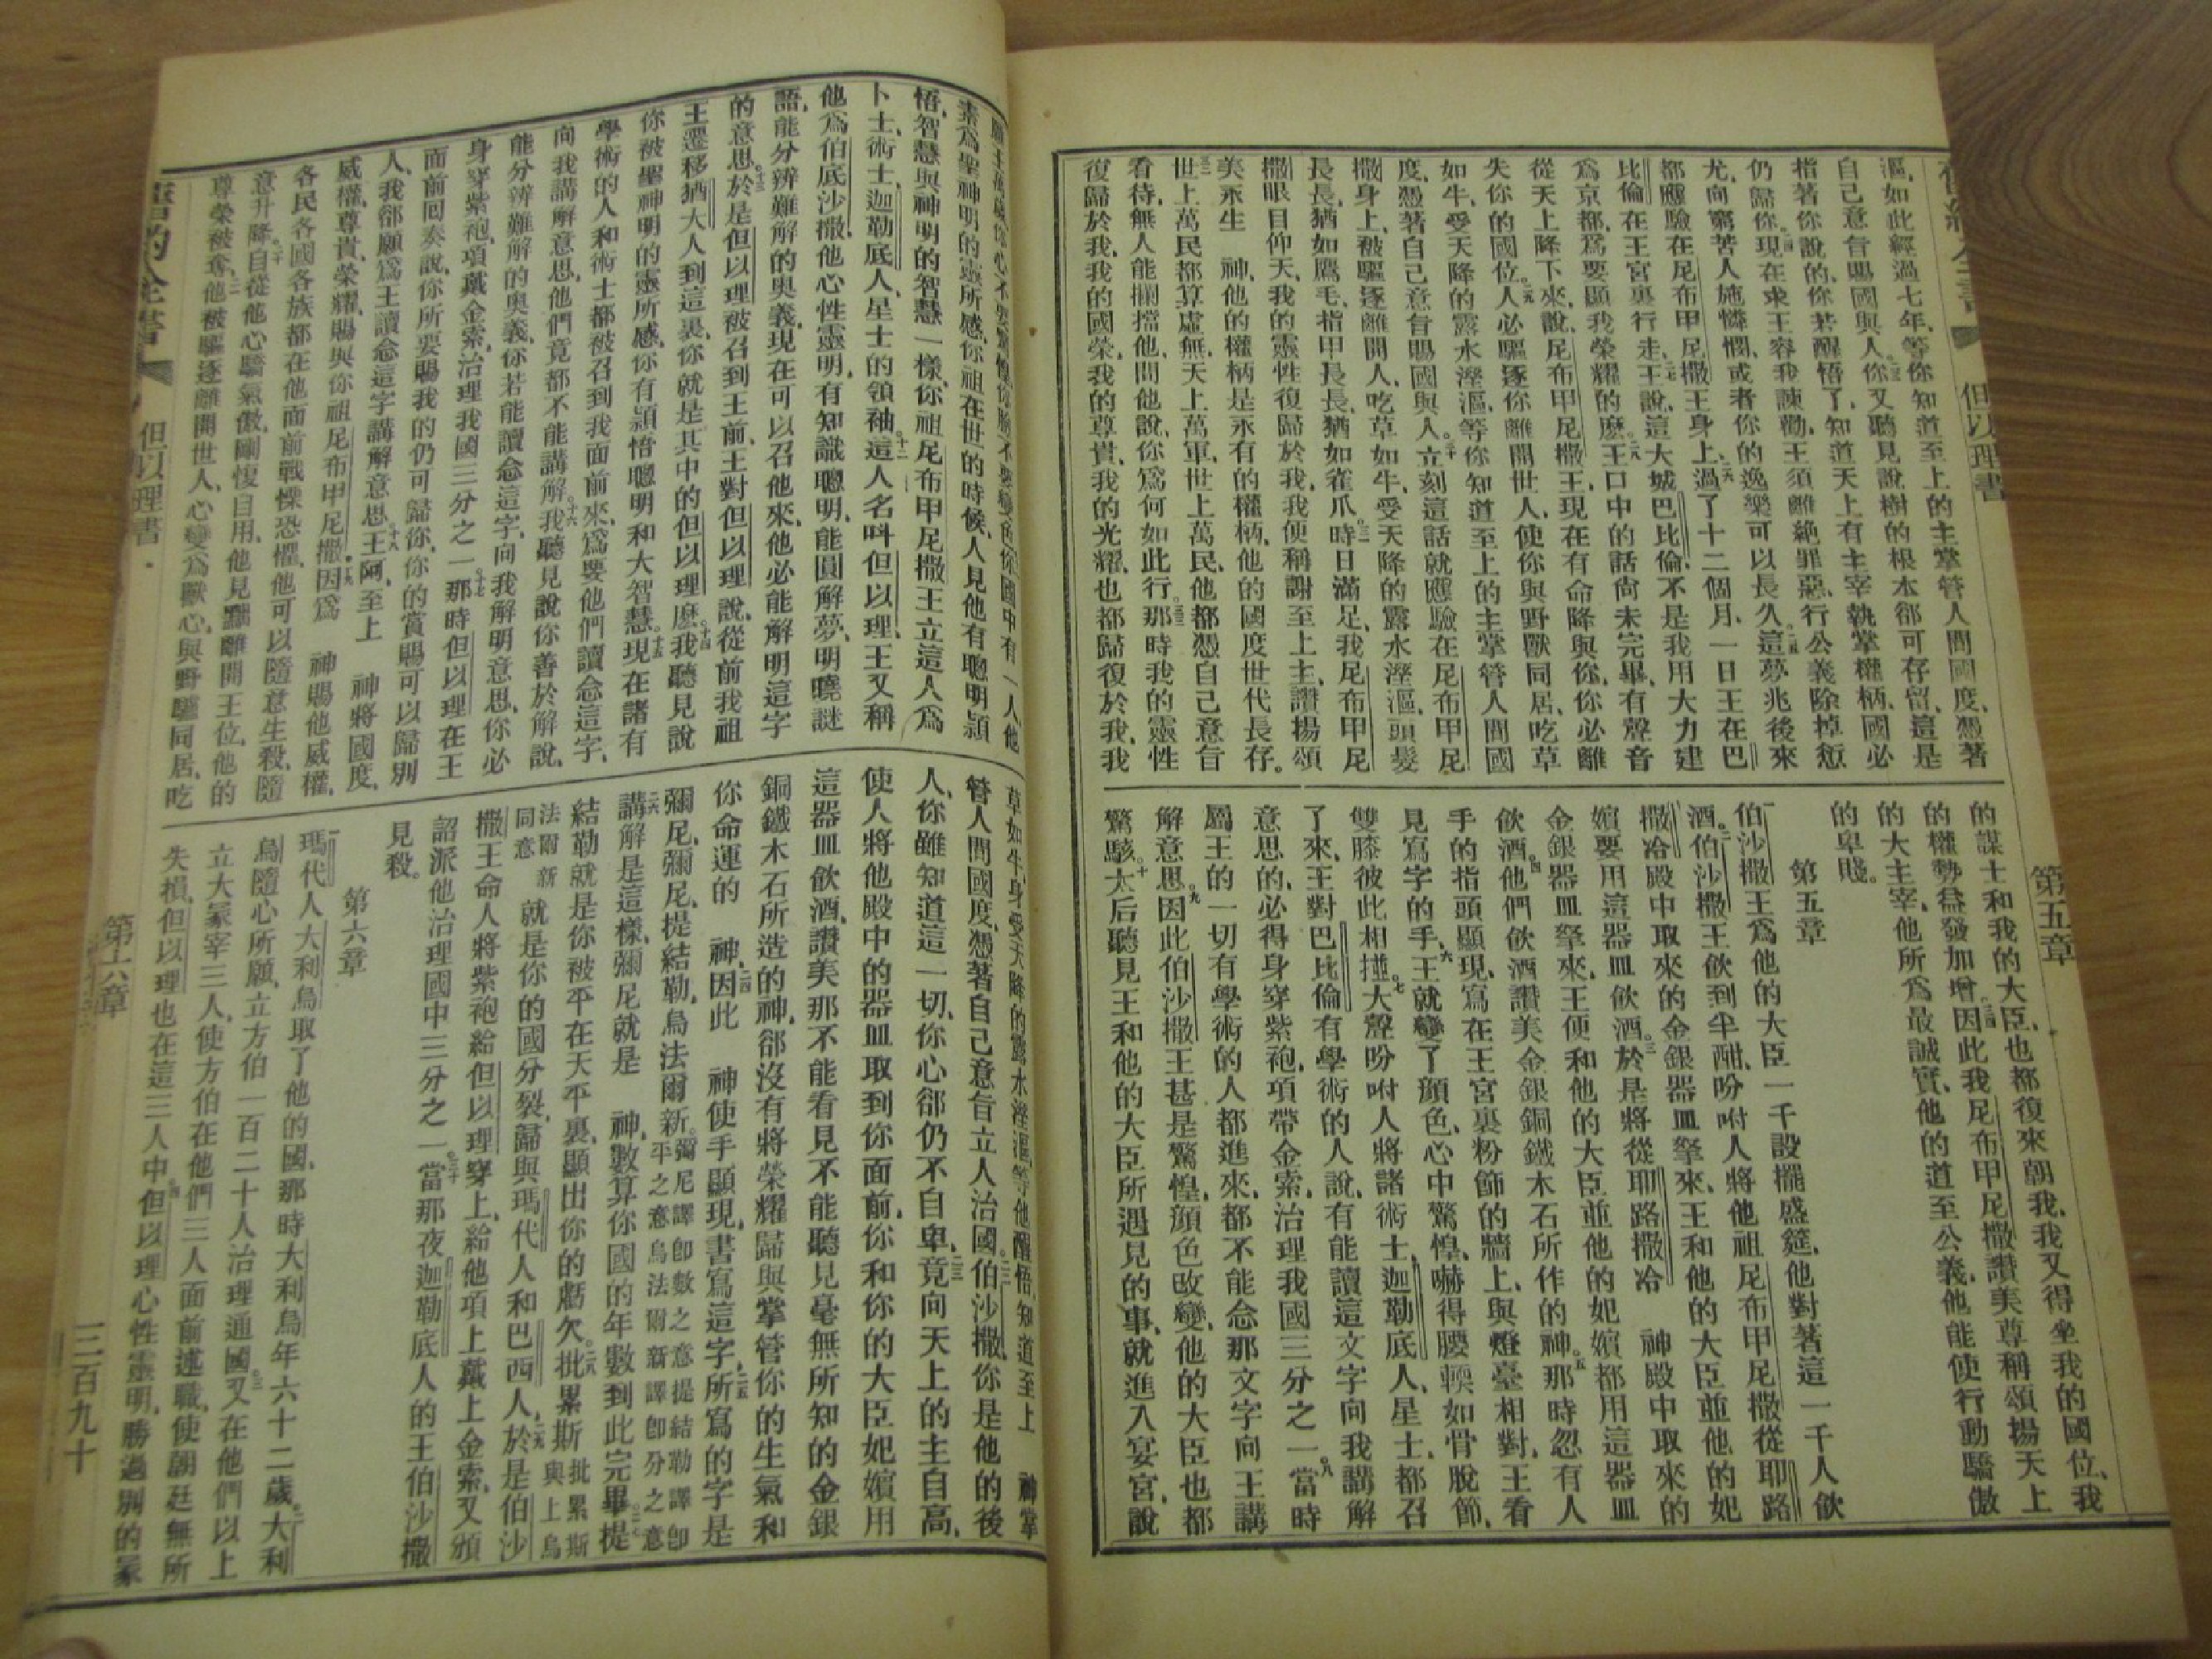 但以理書
第五章
漚、如此經過七年、等你知道至上的主掌管人間國度、憑著
自己意旨賜國與人、你又聽見說樹的根本卻可存留、這是
指著你說的、你若醒悟了、知道天上有主宰執掌權柄、國必
仍歸你、現在求王容我諫勸、王須離絕罪惡、行公義除掉愆
尤、向窮苦人施憐憫、或者你的逸樂可以長久。這夢兆後來
都應驗在尼布甲尼撒王身上、過了十二個月、一日王在巴
比倫在王宮裏行走、王說、這大城巴比倫、不是我用大力建
爲京都、爲要顯我榮耀的麽、王口中的話尙未完畢、有聲音
從天上降下來、說、尼布甲尼撒王現在有命降與你、你必離
失你的國位、人必驅逐你離開世人、使你與野獸同居、吃草
如牛、受天降的露水溼漚、等你知道至上的主掌管人間國
度、憑著自己意旨賜國與人。立刻這話就應驗在尼布甲尼
撒身上、被驅逐離開人、吃草如牛、受天降的露水溼漚、頭髮
長長、猶如鷹毛、指甲長長、猶如雀爪。時日滿足、我尼布甲尼
撒眼目仰天、我的靈性復歸於我、我便稱謝至上主、讚揚頌
美永生　神、他的權柄是永有的權柄、他的國度世代長存。
世上萬民都算虛無、天上萬軍、世上萬民、他都憑自己意旨
看待、無人能攔擋他、問他說、你爲何如此行。那時我的靈性
復歸於我、我的國榮、我的尊貴、我的光耀、也都歸復於我、我
的謀士和我的大臣、也都復來朝我、我又得坐我的國位、我
的權勢益發加增。因此我尼布甲尼撒讚美尊稱頌揚天上
的大主宰、他所爲最誠實、他的道至公義、他能使行動驕傲
的卑賤。
第五章
伯沙撒王爲他的大臣一千設擺盛筵、他對著這一千人飲
酒。伯沙撒王飲到半酣、吩咐人將他祖尼布甲尼撒從耶路
撒冷殿中取來的金銀器皿拏來、王和他的大臣並他的妃
嬪要用這器皿飲酒。於是將從耶路撒冷　神殿中取來的
金銀器皿拏來、王便和他的大臣並他的妃嬪都用這器皿
飲酒。他們飲酒讚美金銀銅鐵木石所作的神。那時忽有人
手的指頭顯現、寫在王宮裏粉飾的牆上、與燈臺相對、王看
見寫字的手、王就變了顏色、心中驚惶、嚇得腰輭如骨脫節、
雙膝彼此相撞。大聲吩咐人將諸術士、迦勒底人、星士、都召
了來、王對巴比倫有學術的人說、有能讀這文字向我講解
意思的、必得身穿紫袍、項帶金索、治理我國三分之一。當時
屬王的一切有學術的人都進來、都不能念那文字向王講
解意思。因此伯沙撒王甚是驚惶、顏色改變、他的大臣也都
驚駭。太后聽見王和他的大臣所遇見的事、就進入宴宮、說
素爲聖神明的靈所感、你祖在世的時候、人見他有聰明穎
悟、智慧與神明的智慧一樣、你祖尼布甲尼撒王立這人爲
卜士、術士、迦勒底人、星士的領袖。這人名叫但以理、王又稱
他爲伯底沙撒、他心性靈明、有知識聰明、能圓解夢、明曉謎
語、能分辨難解的奥義、現在可以召他來、他必能解明這字
的意思。於是但以理被召到王前、王對但以理說、從前我祖
王遷移猶大人到這裏、你就是其中的但以理麽。我聽見說
你被聖神明的靈所感、你有穎悟聰明和大智慧。現在諸有
學術的人和術士都被召到我面前來、爲要他們讀念這字、
向我講解意思、他們竟都不能講解。我聽見說你善於解說、
能分辨難解的奥義、你若能讀念這字、向我解明意思、你必
身穿紫袍、項戴金索、治理我國三分之一。那時但以理在王
面前囘奏說、你所要賜我的仍可歸你、你的賞賜可以歸別
人、我卻願爲王讀念這字講解意思。王阿、至上　神將國度、
威權、尊貴、榮耀、賜與你祖尼布甲尼撒。因爲　神賜他威權、
各民各國各族都在他面前戰慄恐懼、他可以隨意生殺、隨
意升降。自從他心驕氣傲、剛愎自用、他見黜離開王位、他的
尊榮被奪、他被驅逐離開世人、心變爲獸心、與野驢同居、吃
草如牛、身受天降的露水溼漚、等他醒悟、知道至上　神掌
管人間國度、憑著自己意旨立人治國。伯沙撒、你是他的後
人、你雖知道這一切、你心卻仍不自卑、竟向天上的主自高、
使人將他殿中的器皿取到你面前、你和你的大臣妃嬪用
這器皿飲酒、讚美那不能看見不能聽見毫無所知的金銀
銅鐵木石所造的神、卻沒有將榮耀歸與掌管你的生氣和
你命運的　神、因此　神使手顯現、書寫這字、所寫的字是
彌尼、彌尼、提結勒、烏法爾新。彌尼譯卽數之意提結勒譯卽平之意烏法爾新譯卽分之意
講解是這樣、彌尼就是　神、數算你國的年數到此完畢。提
結勒就是你被平在天平裏、顯出你的虧欠。批累斯批累斯與上烏
法爾新同意就是你的國分裂、歸與瑪代人和巴西人、於是伯沙
撒王命人將紫袍給但以理穿上、給他項上戴上金索、又頒
詔派他治理國中三分之一。當那夜迦勒底人的王伯沙撒
見殺。
第六章
瑪代人大利烏取了他的國、那時大利烏年六十二歲。大利
烏隨心所願、立方伯一百二十人治理通國。又在他們以上
立大冢宰三人、使方伯在他們三人面前述職、使朝廷無所
失損、但以理也在這三人中、但以理心性靈明、勝過別的冢
但以理書
第六章
三百九十